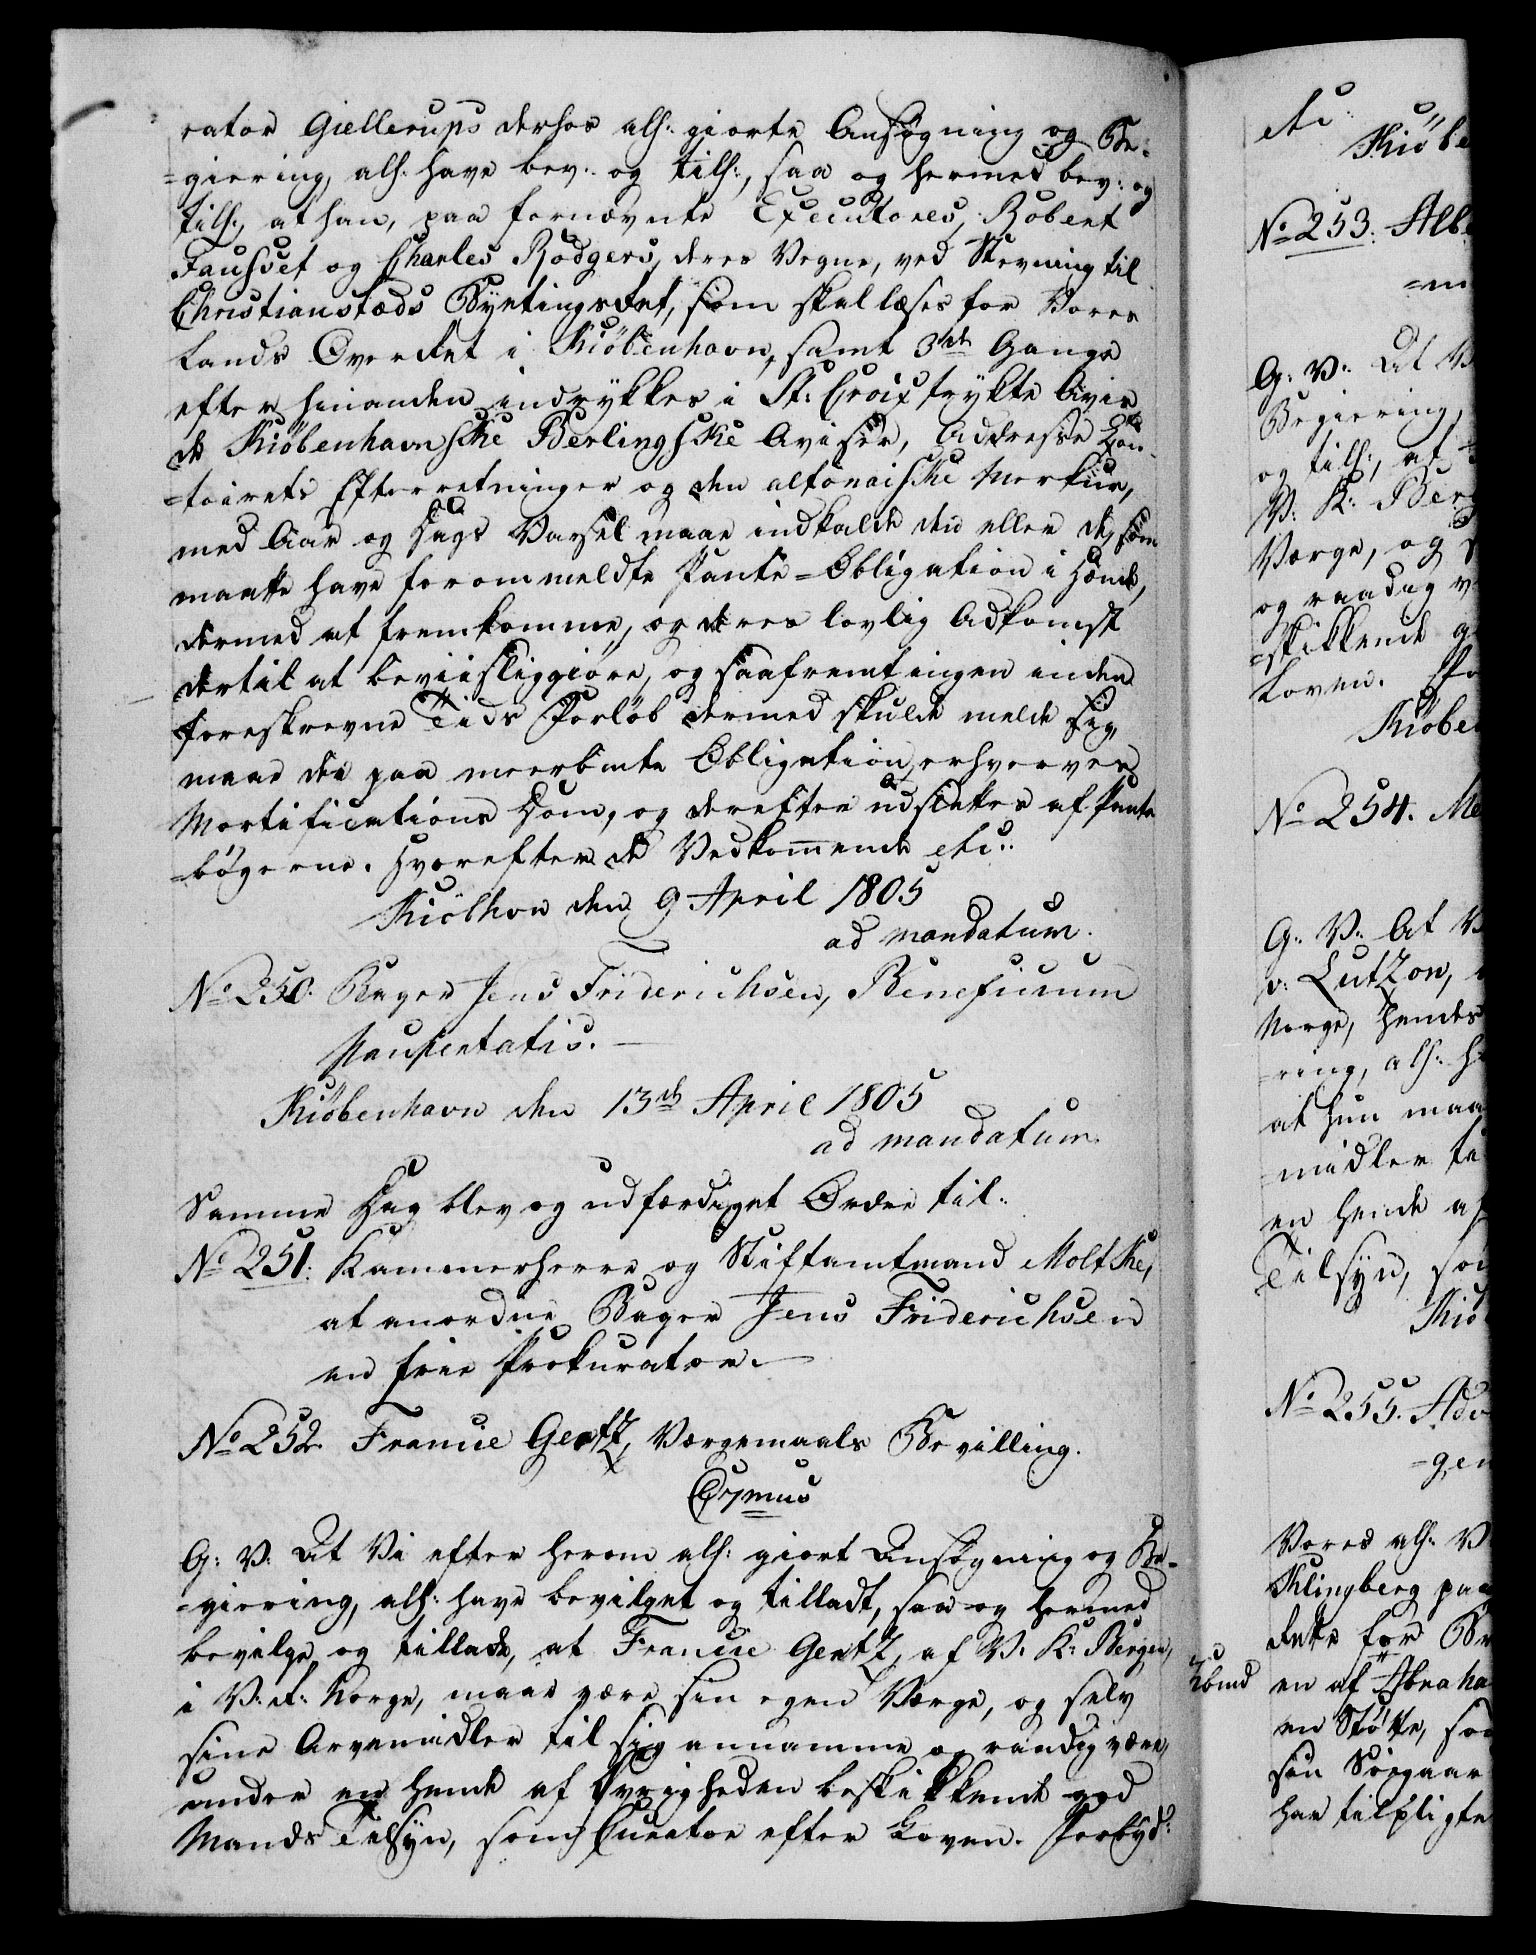 rator Giellerups derhos all: giorte Ansøgning og Be-
=giering, all: have bev: og till:, saa og hermed bev: og
till:, at han, paa fornævnte Executores, Robert
Fausset og Charles Rodgers, deres Vegne, ved Stevning til
Christianstæds Byetingsret, som skal læses for Vores
Lands Overret i Kiöbenhavn, samt 3de Gange
efter hinanden indrykkes i St: Croix trykte Avis
de Kiöbenhavnske Berlingske Aviser, Addresse Con-
=toirets Efterretninger og den altonaiske Merkur,
med Aar og Dags Varsel maae indkalde den eller de, som
maatte have forommeldte Pante=Obligation i Hænde,
dermed at fremkomme, og deres lovlig Adkomst
dertil at beviisliggiøre, og saafremt ingen inden
foreskrevne Tids Forløb dermed skulde melde sig,
maae der paa meerbemte Obligation erhverves
Mortifications Dom, og derefter udslettes af Pante
=bøgerne. Hvorefter de Vedkommende etc:
Kiöbhvn den 9 April 1805
ad mandatum.
No 250. Bager Jens Friderichsen, Beneficium
Paupertatis.
Kiöbenhavn den 13de April 1805
ad mandatum.
Samme Dag blev og udfærdiget Ordre til:
No 251: Kammerherre og Stiftamtmand Moltke,
at anordne Bager Jens Friderichsen
en frie Prokurator.
No 252. Francie Geatz, Værgemaals Bevilling.
G: V: At Vi efter herom all: giort Ansøgning og Be-
=giering, all: have bevilget og tilladt, saa og hermed
bevilge og tillade, at Francie Geatz, af V: K: Bergen,
i V: R: Norge, maae være sin egen Værge, og selv
sine Arvemidler til sig annamme og raadig være,
under en hende af Øvrigheden beskikkende god
Mands Tilsyn, som Curator efter Loven. Forbyd:
etc:
Kiöbe
No 253. Alb
=m
G: V: At V
Begiering,
og till:, at
V: K: Berg
Værge, og
og raadig v
=skikkende g
Loven. Fo
Kiöbe
No 254. Me
G: V: At V
v: Lutzon,
Norge, hendes
=ring, all: h
at hun maa
=midler ti
en hende af
Tilsyn, som
Kiö
No 255. Adv
=gen
Vores all: V
Klingberg paa
dets for Be
en af Abraha
en Støtte, som
sin Siegaar
har tilpligte